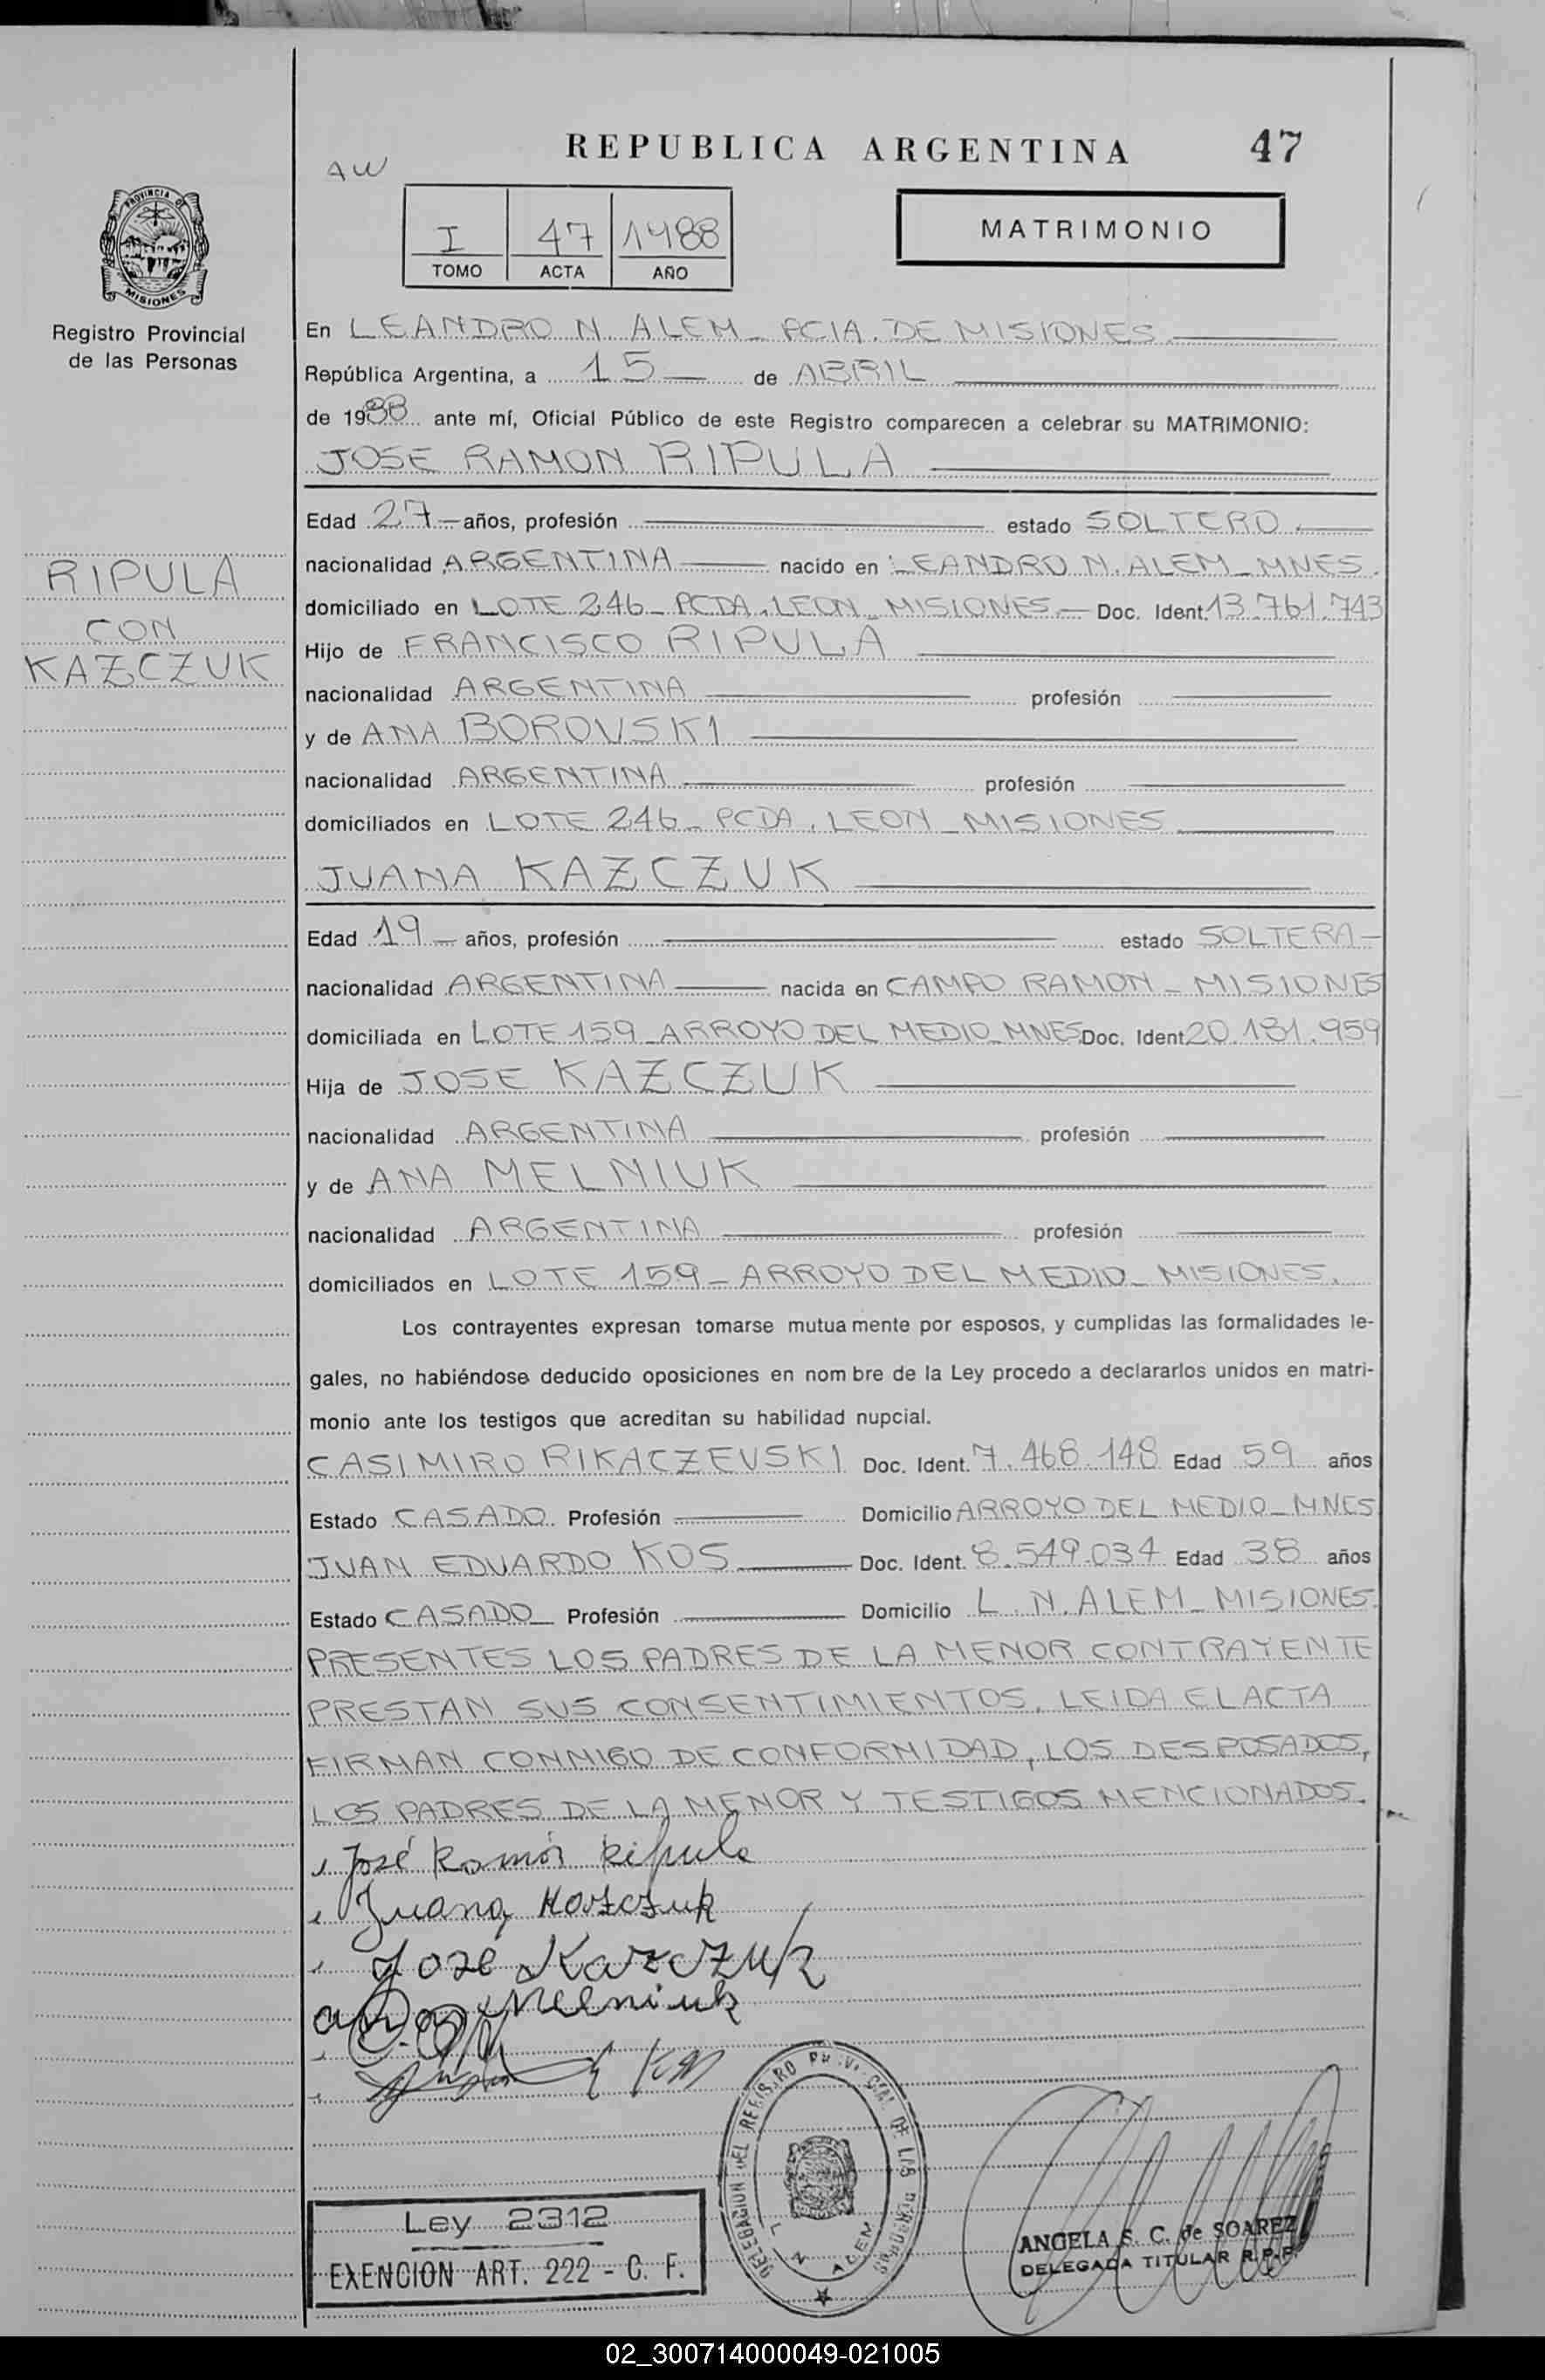 REPUBLICA ARGENTINA 47
AW
I 47 1988
TOMO ACTA AÑO
MATRIMONIO
PROVINCIA DE
MISIONES
Registro Provincial
de las Personas
En LEANDRO N. ALEM - PCIA. DE MISIONES
República Argentina, a 15 de ABRIL
de 1988 ante mí, Oficial Público de este Registro comparecen a celebrar su MATRIMONIO:
JOSE RAMON RIPULA
Edad 27 años, profesión estado SOLTERO.
RIPULA
CON
KAZCZUK
nacionalidad ARGENTINA nacido en LEANDRO N. ALEM - MNES.
domiciliado en LOTE 246 - PCDA. LEON - MISIONES - Doc. Ident. 13.761.743
Hijo de FRANCISCO RIPULA
nacionalidad ARGENTINA profesión
y de ANA BOROVSKI
nacionalidad ARGENTINA profesión
domiciliados en LOTE 246 - PCDA. LEON - MISIONES
JUANA KAZCZUK
Edad 19 - años, profesión estado SOLTERA -
nacionalidad ARGENTINA nacida en CAMPO RAMON - MISIONES
domiciliada en LOTE 159 - ARROYO DEL MEDIO - MNES Doc. Ident. 20.181.959
Hija de JOSE KAZCZUK
nacionalidad ARGENTINA profesión
y de ANA MELNIUK
nacionalidad ARGENTINA profesión
domiciliados en LOTE 159 - ARROYO DEL MEDIO - MISIONES.
Los contrayentes expresan tomarse mutuamente por esposos, y cumplidas las formalidades le-
gales, no habiéndose deducido oposiciones en nombre de la Ley procedo a declararlos unidos en matri-
monio ante los testigos que acreditan su habilidad nupcial.
CASIMIRO RIKACZEVSKI Doc. Ident. 7.468.148 Edad 59 años
Estado CASADO Profesión Domicilio ARROYO DEL MEDIO - MNES
JUAN EDUARDO KOS Doc. Ident. 8.549.034 Edad 38 años
Estado CASADO Profesión Domicilio L. N. ALEM - MISIONES.
PRESENTES LOS PADRES DE LA MENOR CONTRAYENTE
PRESTAN SUS CONSENTIMIENTOS. LEIDA EL ACTA
FIRMAN CONMIGO DE CONFORMIDAD, LOS DESPOSADOS,
LOS PADRES DE LA MENOR Y TESTIGOS MENCIONADOS.
José Ramón Ripula
Juana Kazczuk
José Kazczuk
Ana Melniuk
DELEGACION DEL REGISTRO PROVINCIAL DE LAS PERSONAS
L. N. ALEM
Ley 2312
EXENCION ART. 222 - C. F.
ANGELA S. C. de SOAREZ
DELEGADA TITULAR R.P.P.
02_300714000049-021005